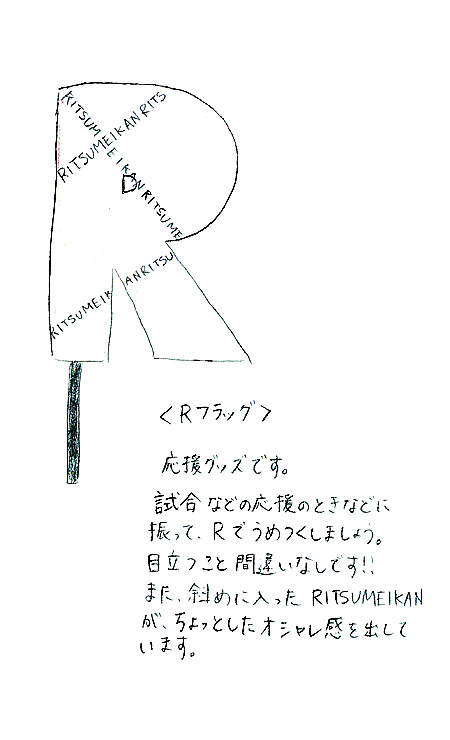 RITSUMEIKANRITSUME
RITSUMEIKANRITS
RITSUMEIKANRITSU
<Rフラッグ>
応援グッズです。
試合などの応援のときなどに
振って、Rでうめつくしましょう。
目立つこと間違いなしです!!
また、斜めに入ったRITSUMEIKAN
が、ちょっとしたオシャレ感を出して
います。